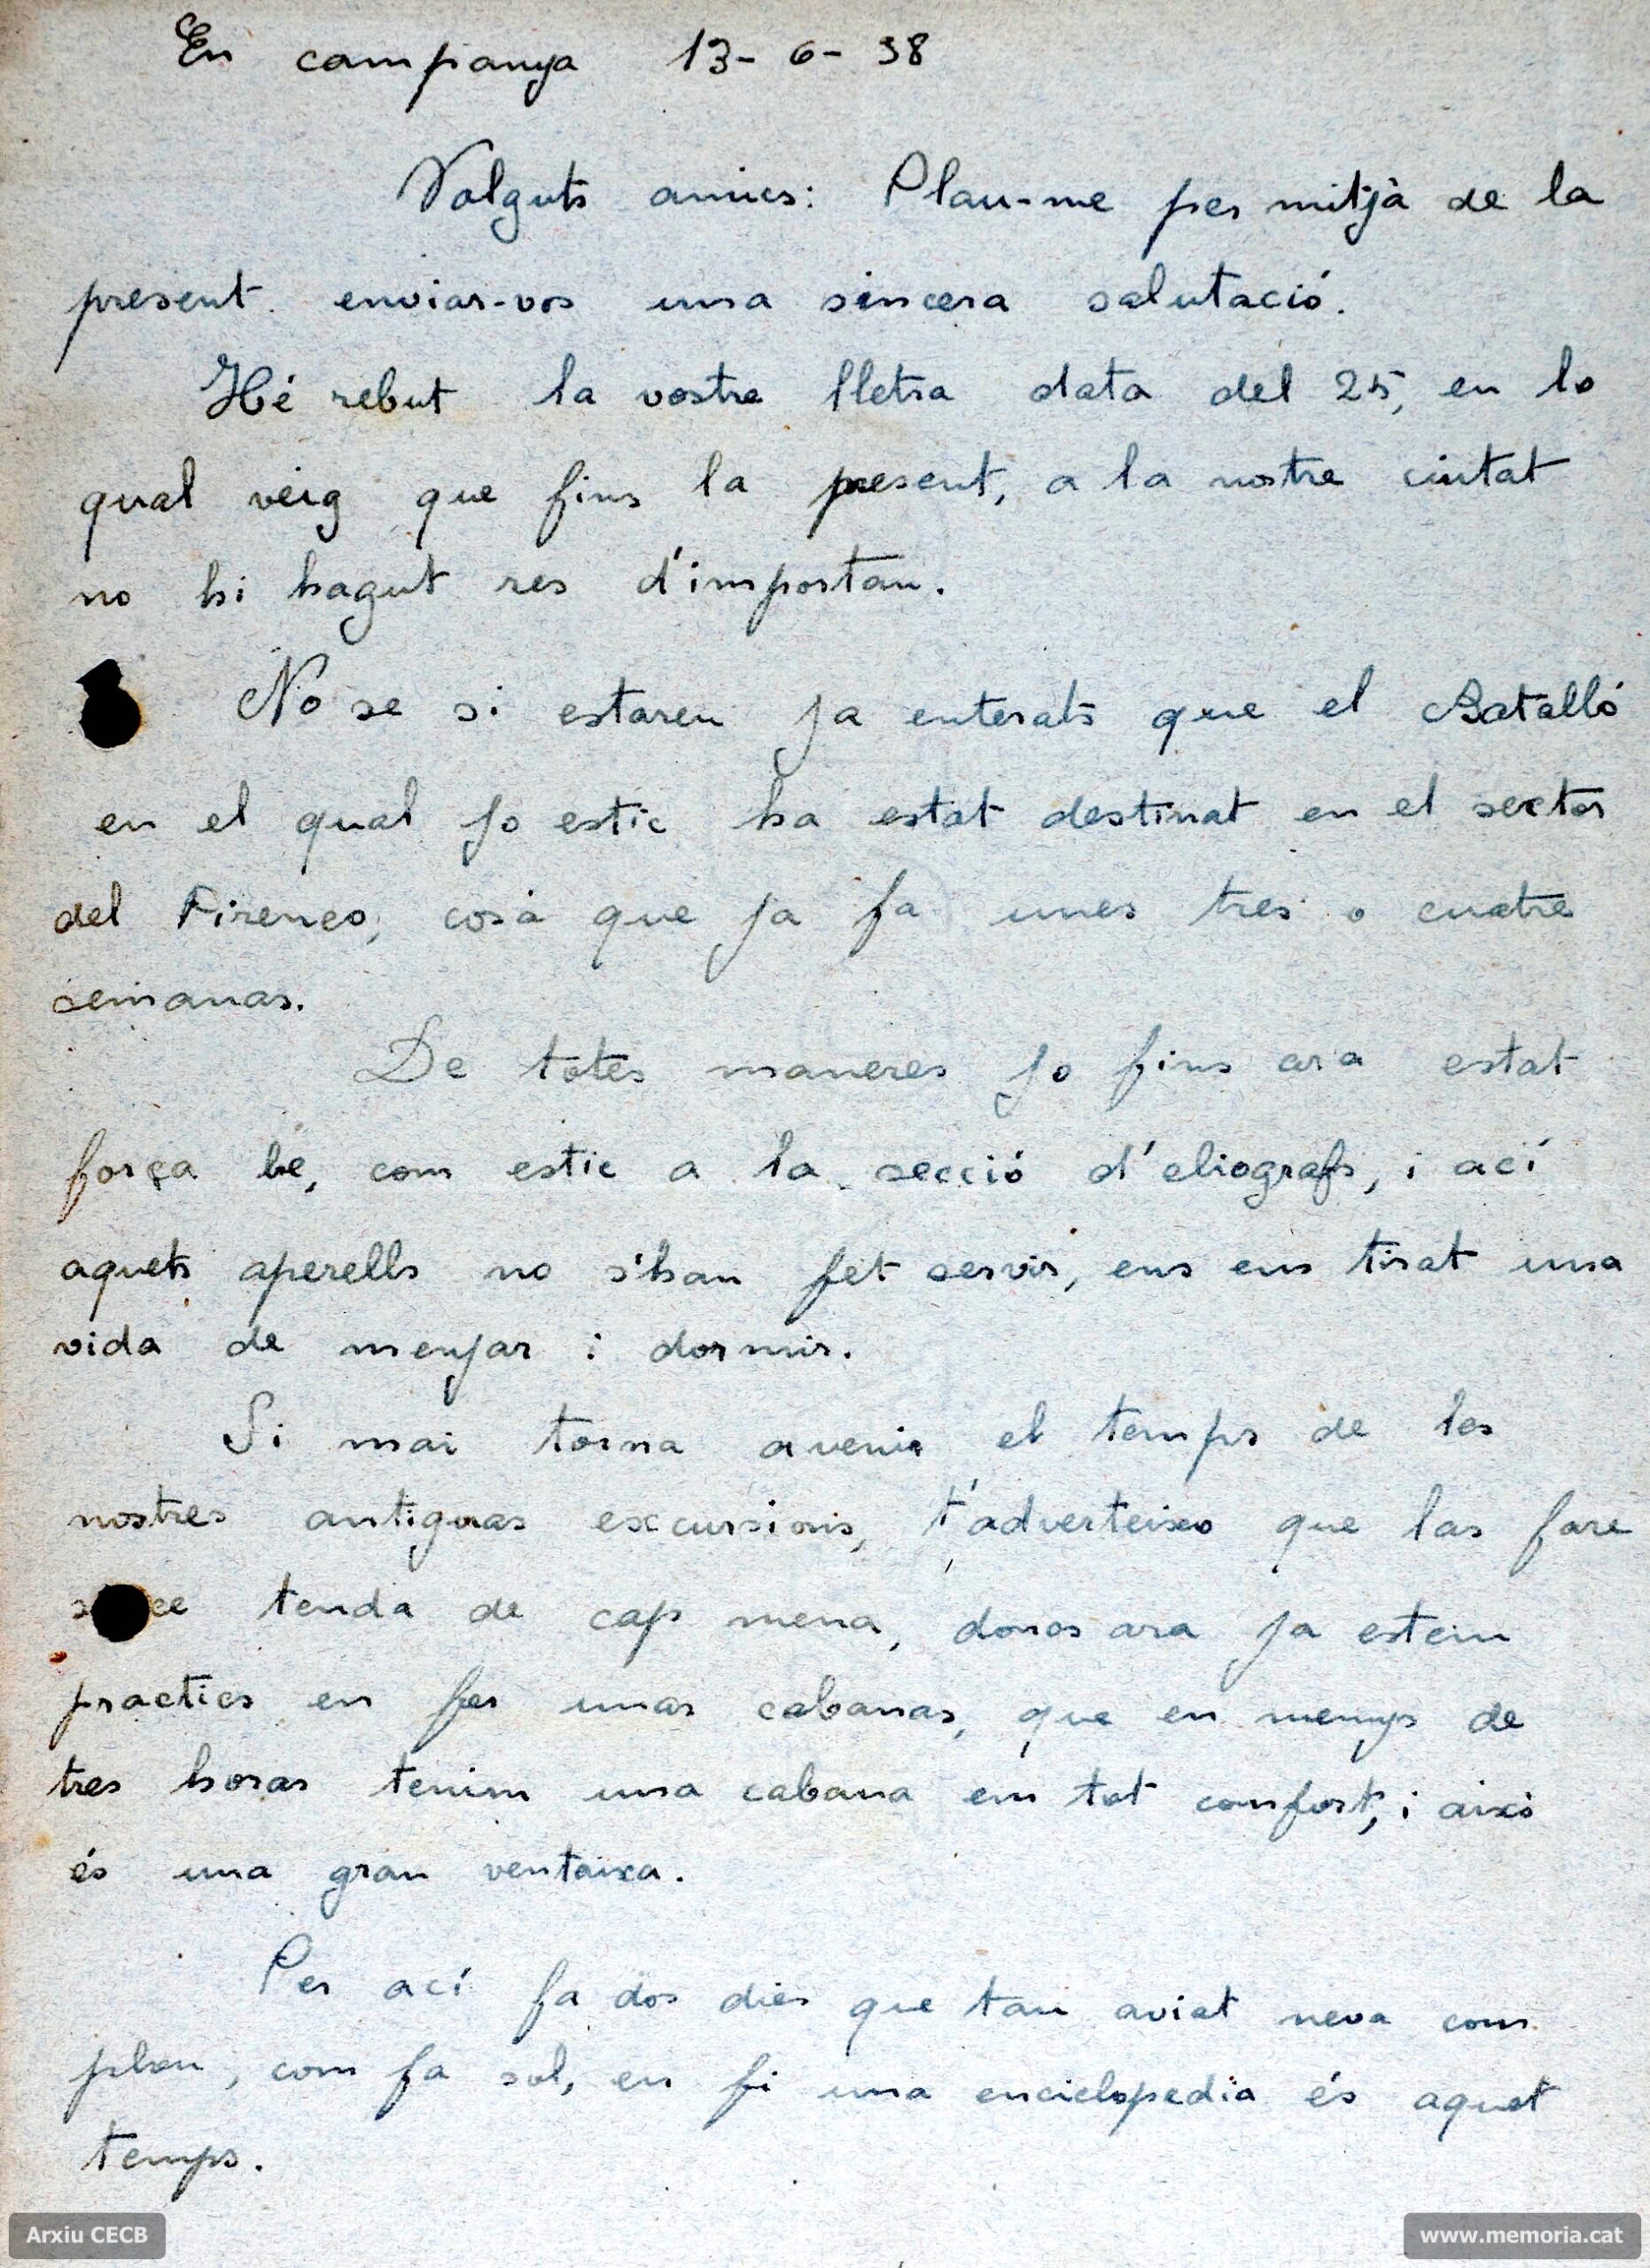 En campanya 13-6-38
Volguts amics: Plau-me per mitjà de la
present enviar-vos una sincera salutació.
Hé rebut la vostre lletra data del 25, en la
qual veig que fins la present, a la nostre ciutat
no hi hagut res d'importan.
No se si estareu ja enterats que el Batalló
en el qual jo estic ha estat destinat en el sector
del Pireneo, cosa que ja fa unes tres o cuatre
semanas.
De totes maneres jo fins ara estat
força be, com estic a la secció d'eliografs, i ací
aquets aperells no s'han fet servir, ens em tirat una
vida de menjar i dormir.
Si mai torna avenir el temps de les
nostres antiguas excursions, t'adverteixo que las fare
tenda de cap mena, doncs ara ja estem
practics en fer unas cabanas, que en menys de
tres horas tenim una cabana em tot confort, i aixó
és una gran ventaixa.
Per ací fa dos dies que tan aviat neva com
plou, com fa sol, en fi una enciclopedia és aquet
temps.
Arxiu CECB
www.memoria.cat